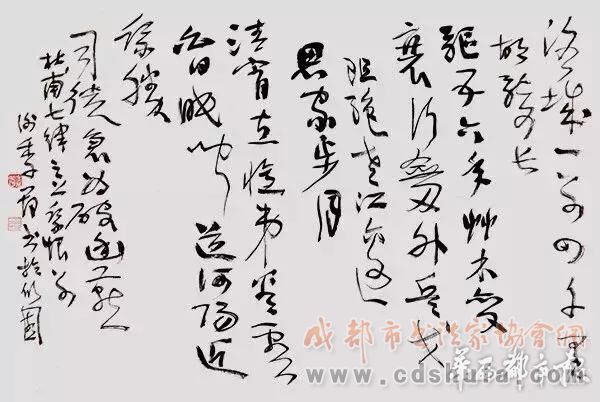 洛城一别四千里
胡骑长
驱五六年草木变
衰行剑外兵戈
阻绝老江边
思家步月
清宵立忆弟看云
白日眠闻道河阳近
乘胜
司徒急为破幽燕
杜甫七律恨别
谢季筠书
成都市书法家协会网
华西都市报
www.cdshufa.com